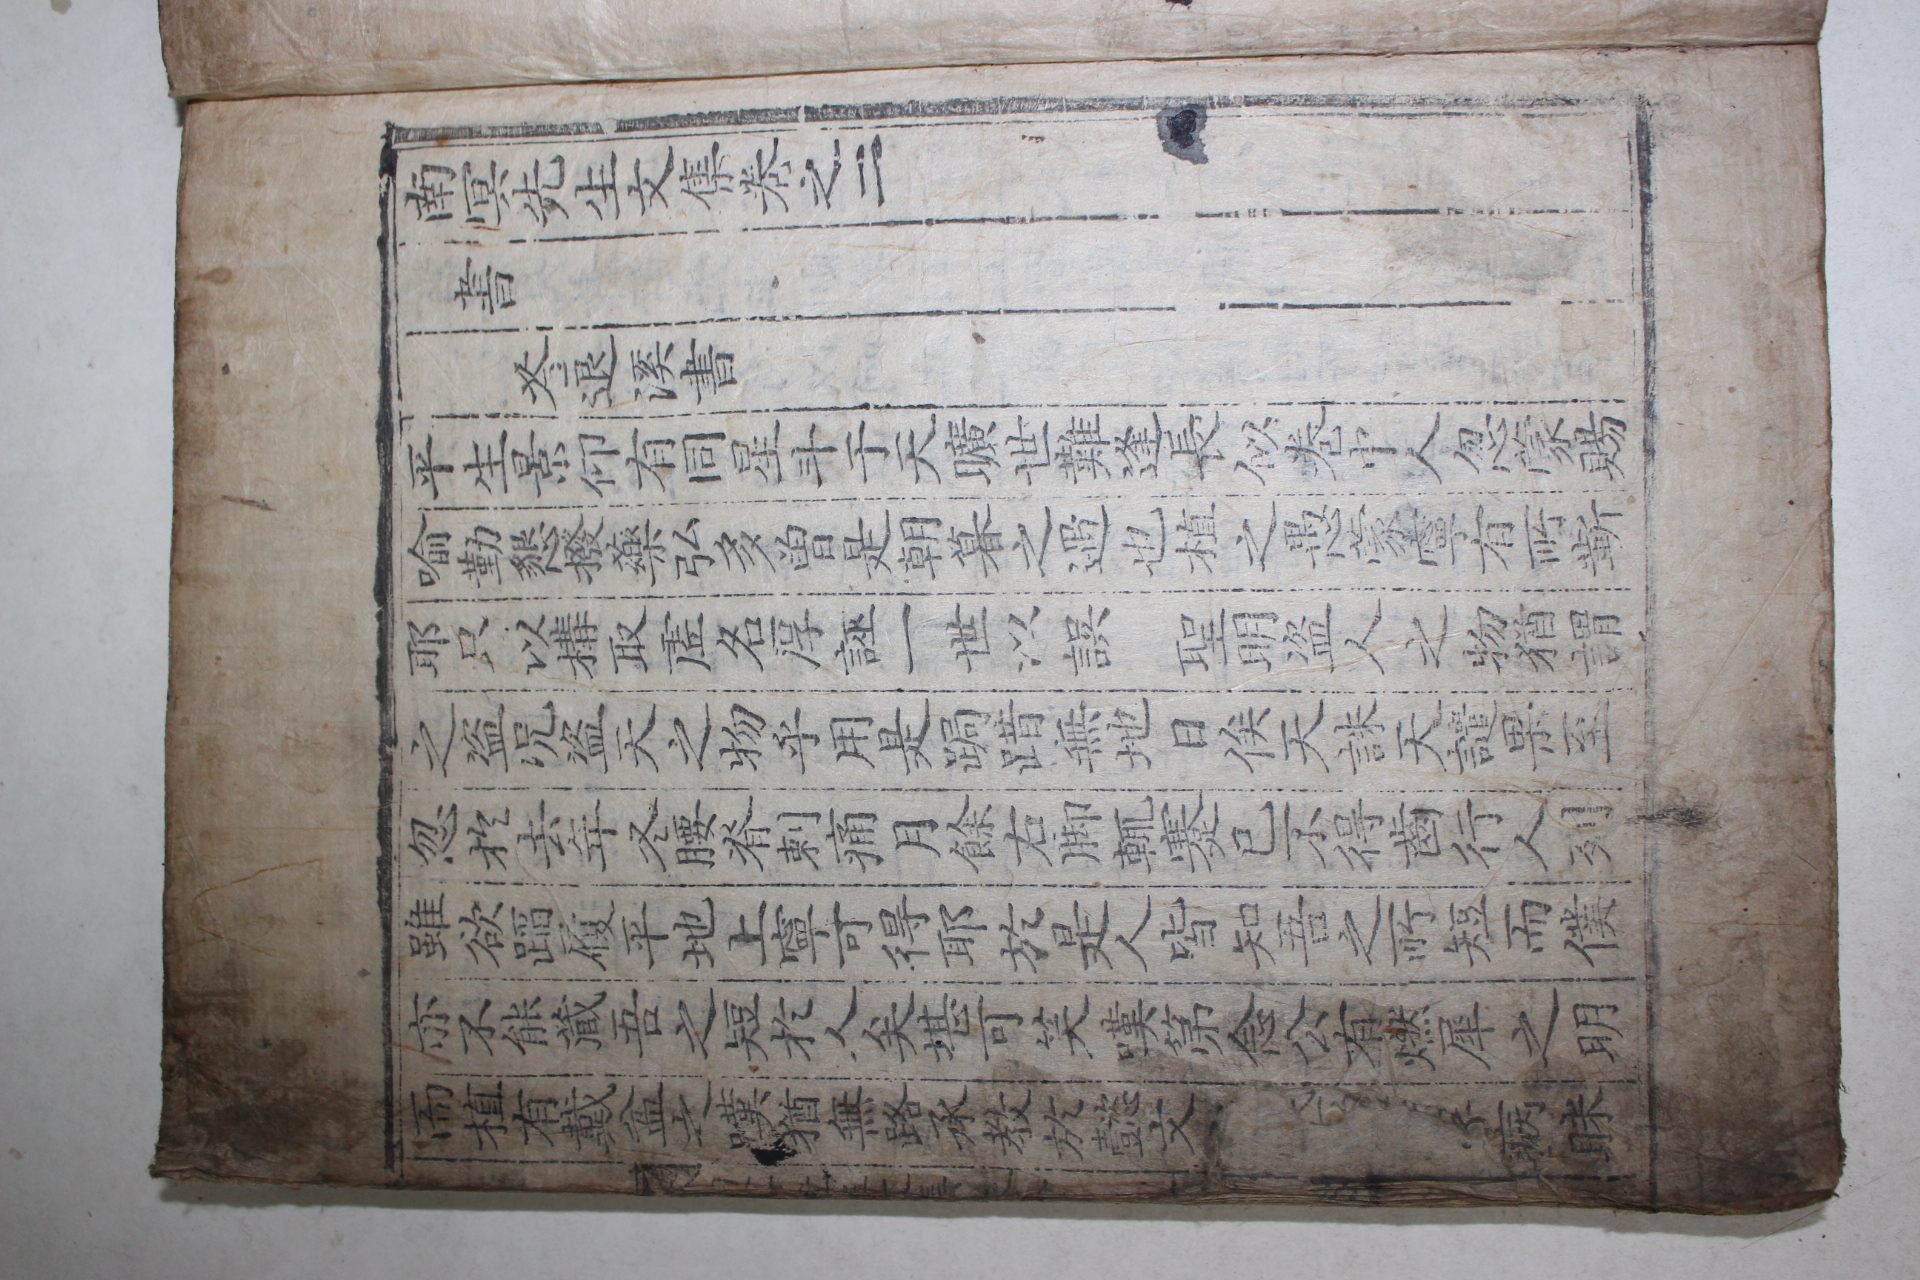 南冥先生文集卷之二
書
答退溪書
平生景仰有同星斗于天曠世難逢長似卷中人忽蒙賜
喩勤懇撥藥弘多曾是朝暮之遇也植之愚蒙寧有所蘄
耶只以構取虛名厚誣一世以誤 聖明盜人之物猶謂
之盜況盜天之物乎用是跼踖無地日俟天誅天譴果至
忽於去年冬腰脊刺痛月餘右脚輒蹇已不得齒行人列
雖欲蹈履平地上寧可得耶於是人皆知吾之所短而僕
亦不能藏吾之短於人矣堪可笑嘆第念公有燃犀之明
而植有戴盆之嘆猶無路承教於懿文 病眯